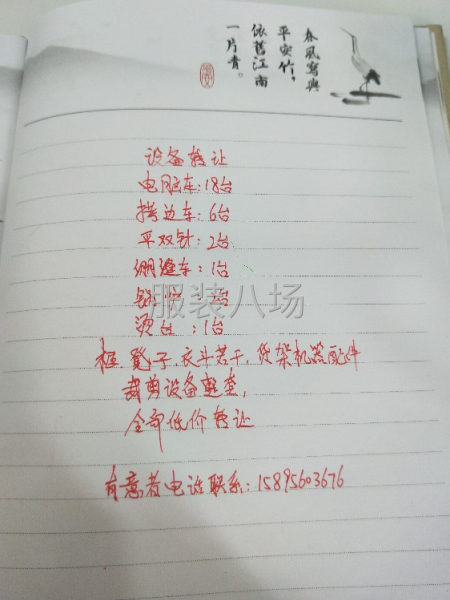 春風寫與
平安竹，
依舊江南
一片青。
设备转让
电脑车：18台
拷边车：6台
平双针：2台
绷缝车：1台
台
烫台：1台
框 凳子，衣斗若干，货架机器配件
裁剪设备整套，
全部低价转让
有意者电话联系：15895603676
服装八场